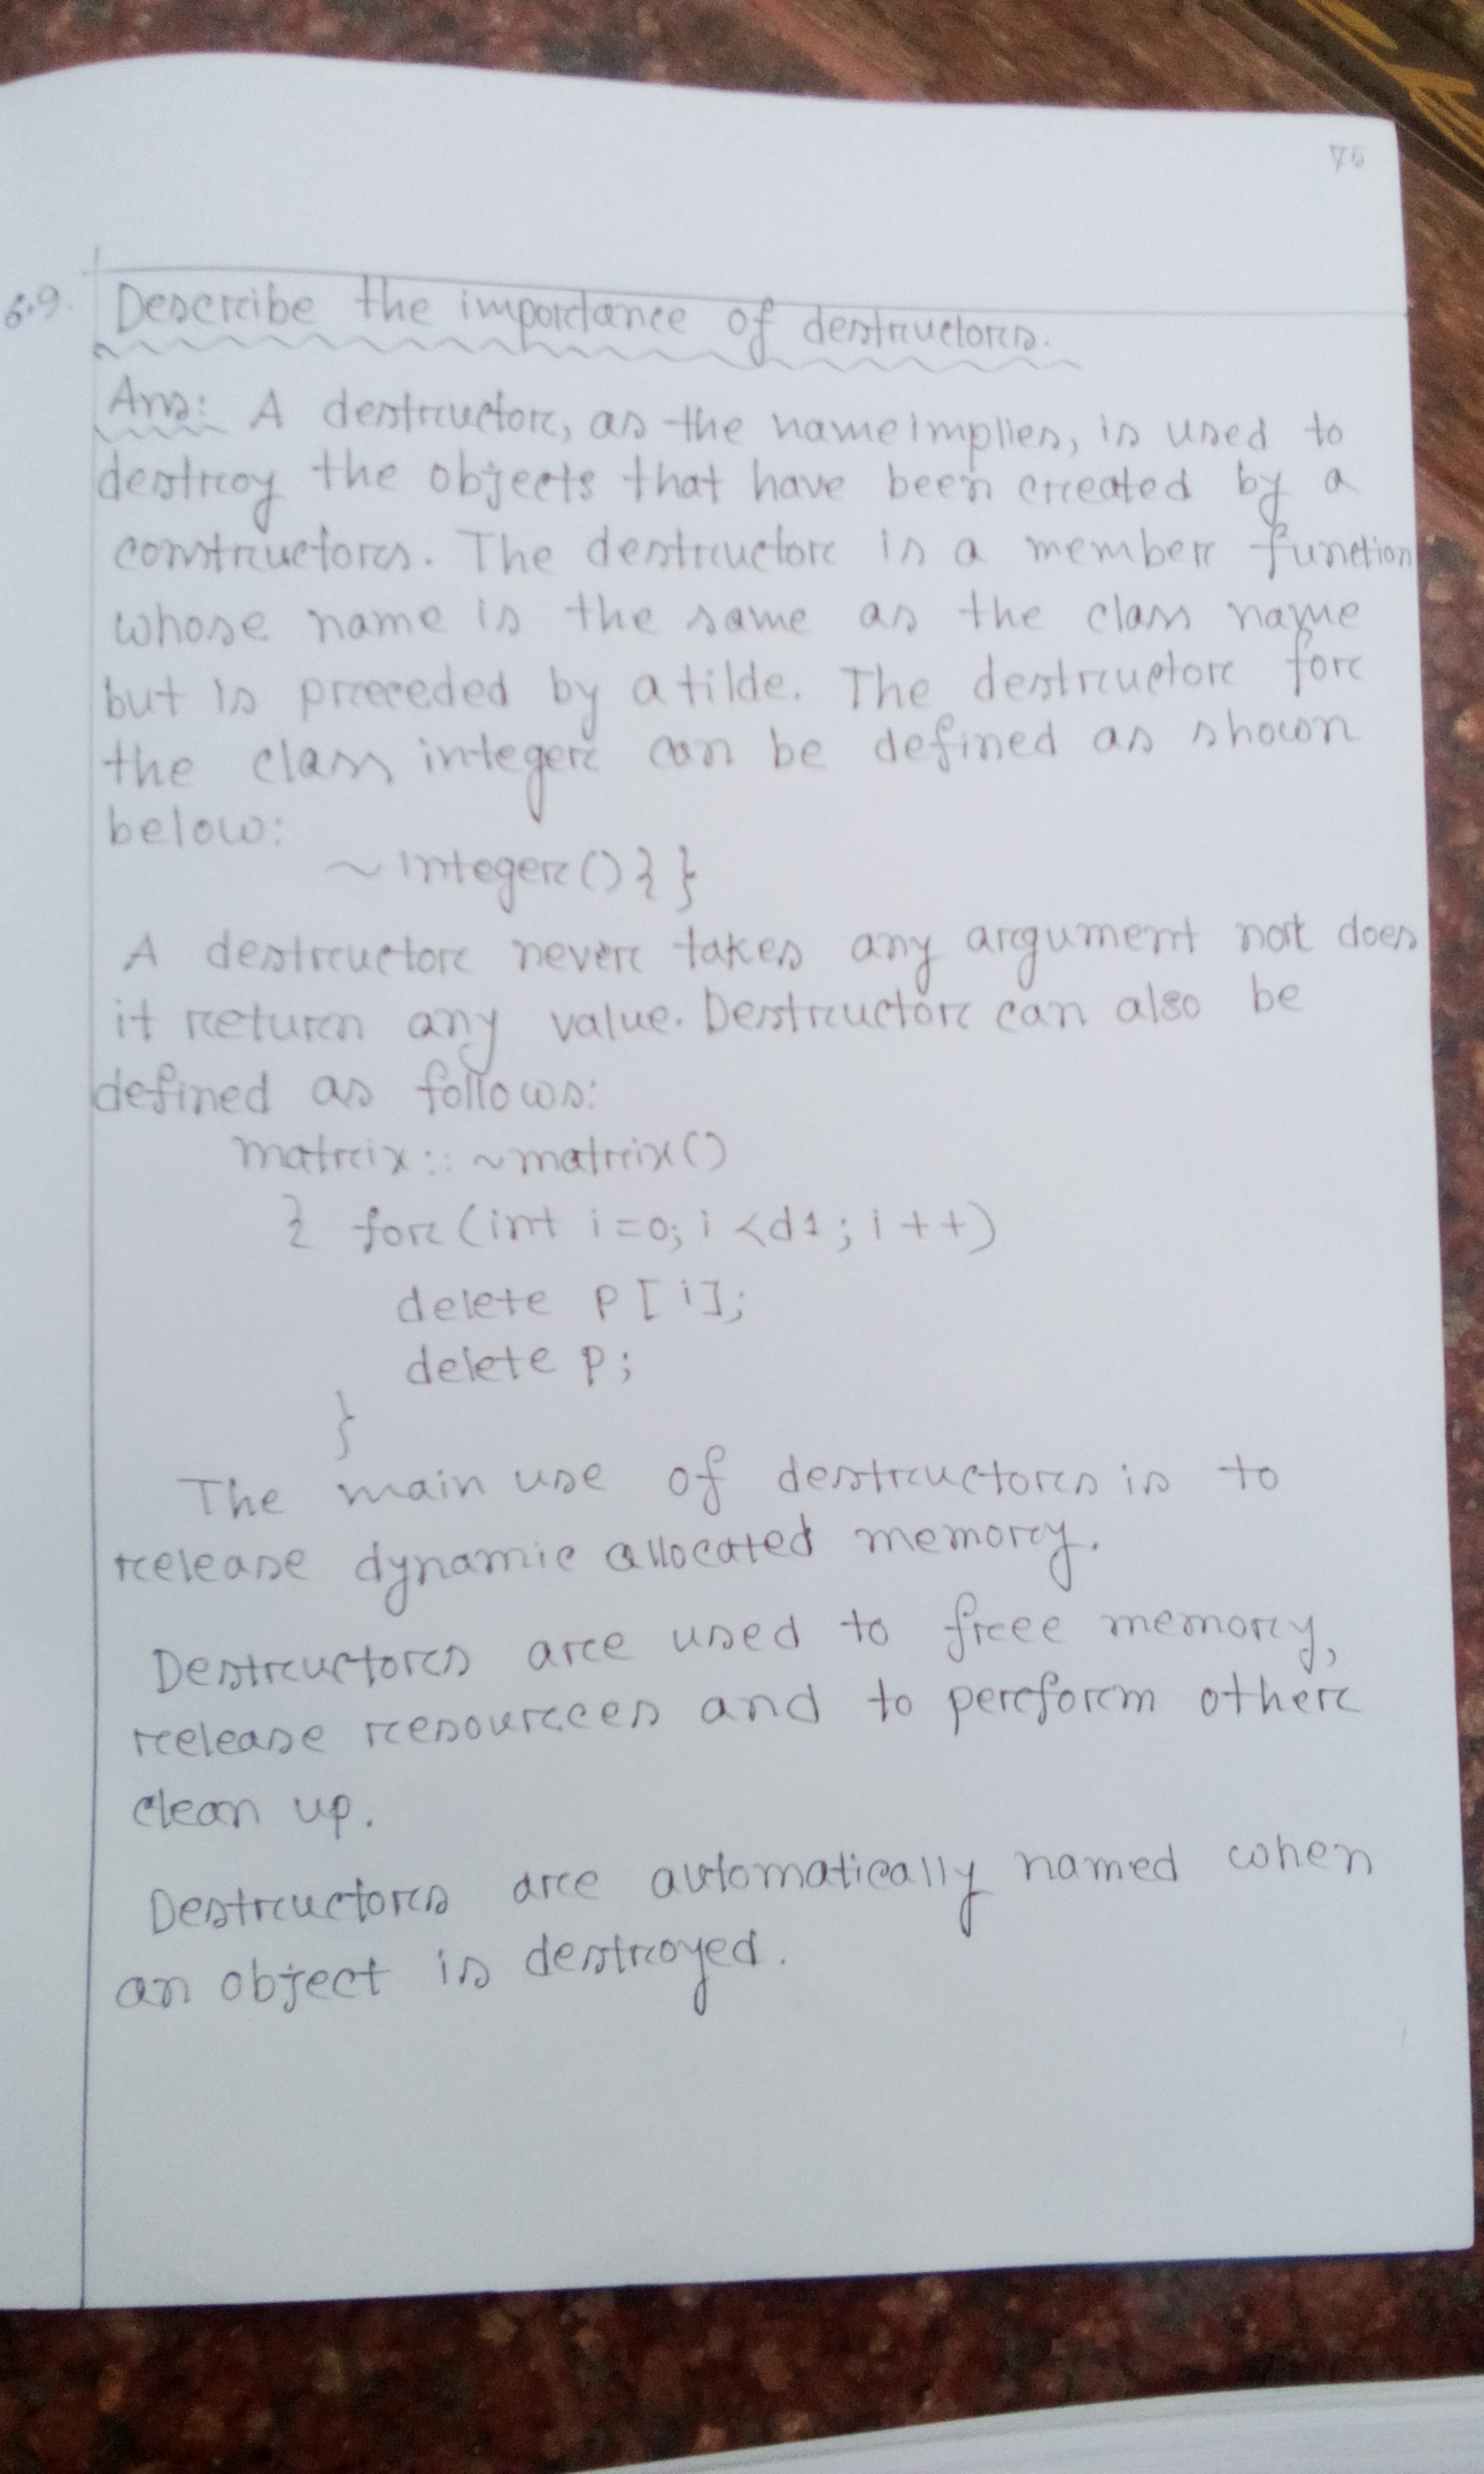 75
6.9. Describe the importance of destructors.
Ans: A destructor, as the name implies, is used to
destroy the objects that have been created by a
constructors. The destructor is a member function
whose name is the same as the class name
but is preceded by a tilde. The destructor for
the class integer can be defined as shown
below:
~ integer() { }
A destructor never takes any argument not does
it return any value. Destructor can also be
defined as follows:
matrix :: ~matrix()
{ for (int i=0; i<d1; i++)
delete p[i];
delete p;
}
The main use of destructors is to
release dynamic allocated memory.
Destructors are used to free memory,
release resources and to perform other
clean up.
Destructors are automatically named when
an object is destroyed.